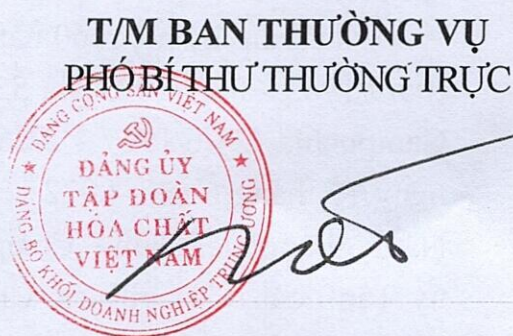 T/M BAN THƯỜNG VỤ
PHÓ BÍ THƯ THƯỜNG TRỰC
ĐẢNG CỘNG SẢN VIỆT NAM
ĐẢNG ỦY
TẬP ĐOÀN
HÓA CHẤT
VIỆT NAM
ĐẢNG BỘ KHỐI DOANH NGHIỆP TRUNG ƯƠNG